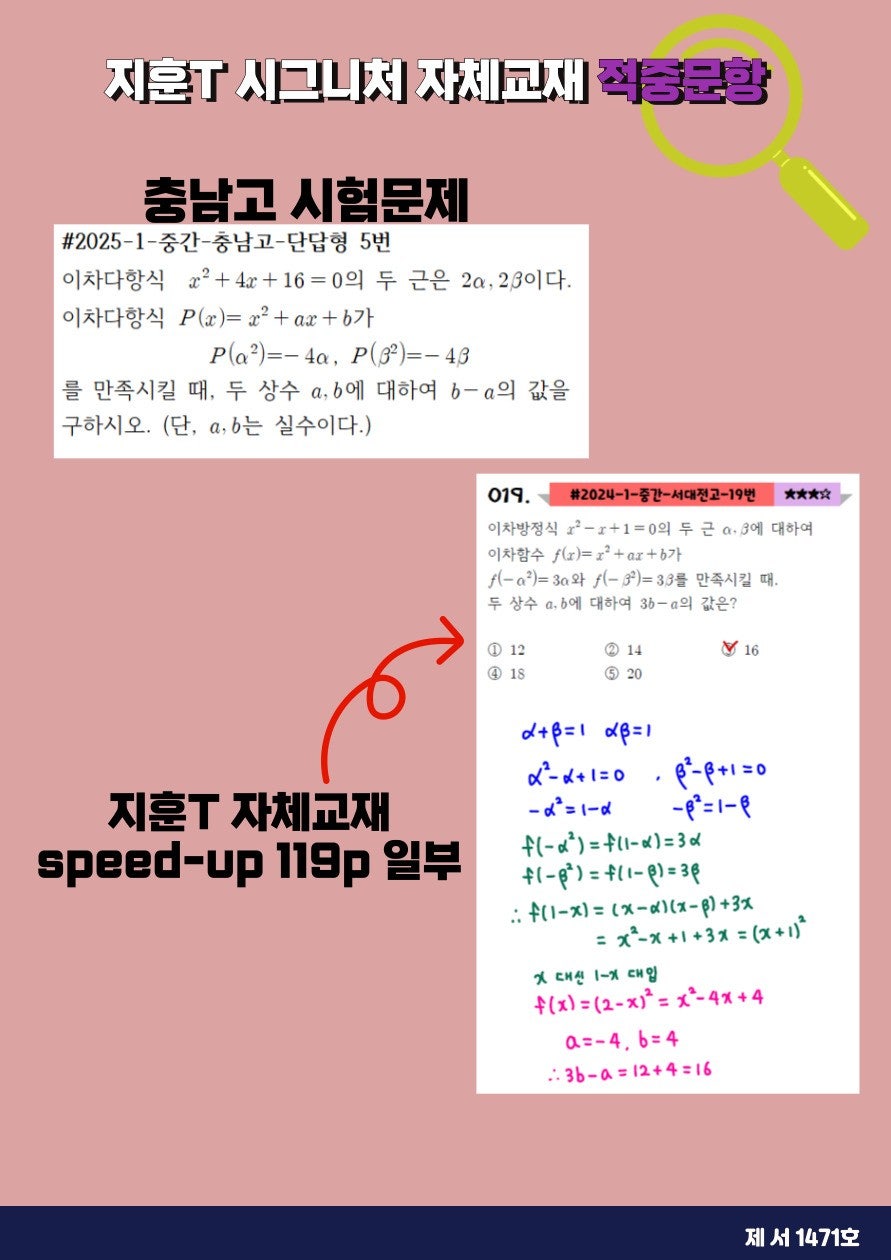 지훈T 시그니처 자체교재 적중문항
충남고 시험문제
#2025-1-중간-충남고-단답형 5번
이차다항식 x²+4x+16=0의 두 근은 2α, 2β이다.
이차다항식 P(x)=x²+ax+b가
P(α²)=-4α, P(β²)=-4β
를 만족시킬 때, 두 상수 a, b에 대하여 b-a의 값을
구하시오. (단, a, b는 실수이다.)
019. #2024-1-중간-서대전고-19번 ★★★☆
이차방정식 x²-x+1=0의 두 근 α, β에 대하여
이차함수 f(x)=x²+ax+b가
f(-α²)=3α와 f(-β²)=3β를 만족시킬 때,
두 상수 a, b에 대하여 3b-a의 값은?
① 12 ② 14 ③ 16
④ 18 ⑤ 20
α+β=1 αβ=1
α²-α+1=0 , β²-β+1=0
-α²=1-α -β²=1-β
f(-α²)=f(1-α)=3α
f(-β²)=f(1-β)=3β
∴ f(1-x)=(x-α)(x-β)+3x
=x²-x+1+3x=(x+1)²
x 대신 1-x 대입
f(x)=(2-x)²=x²-4x+4
a=-4, b=4
∴3b-a=12+4=16
지훈T 자체교재
speed-up 119p 일부
제 서 1471호